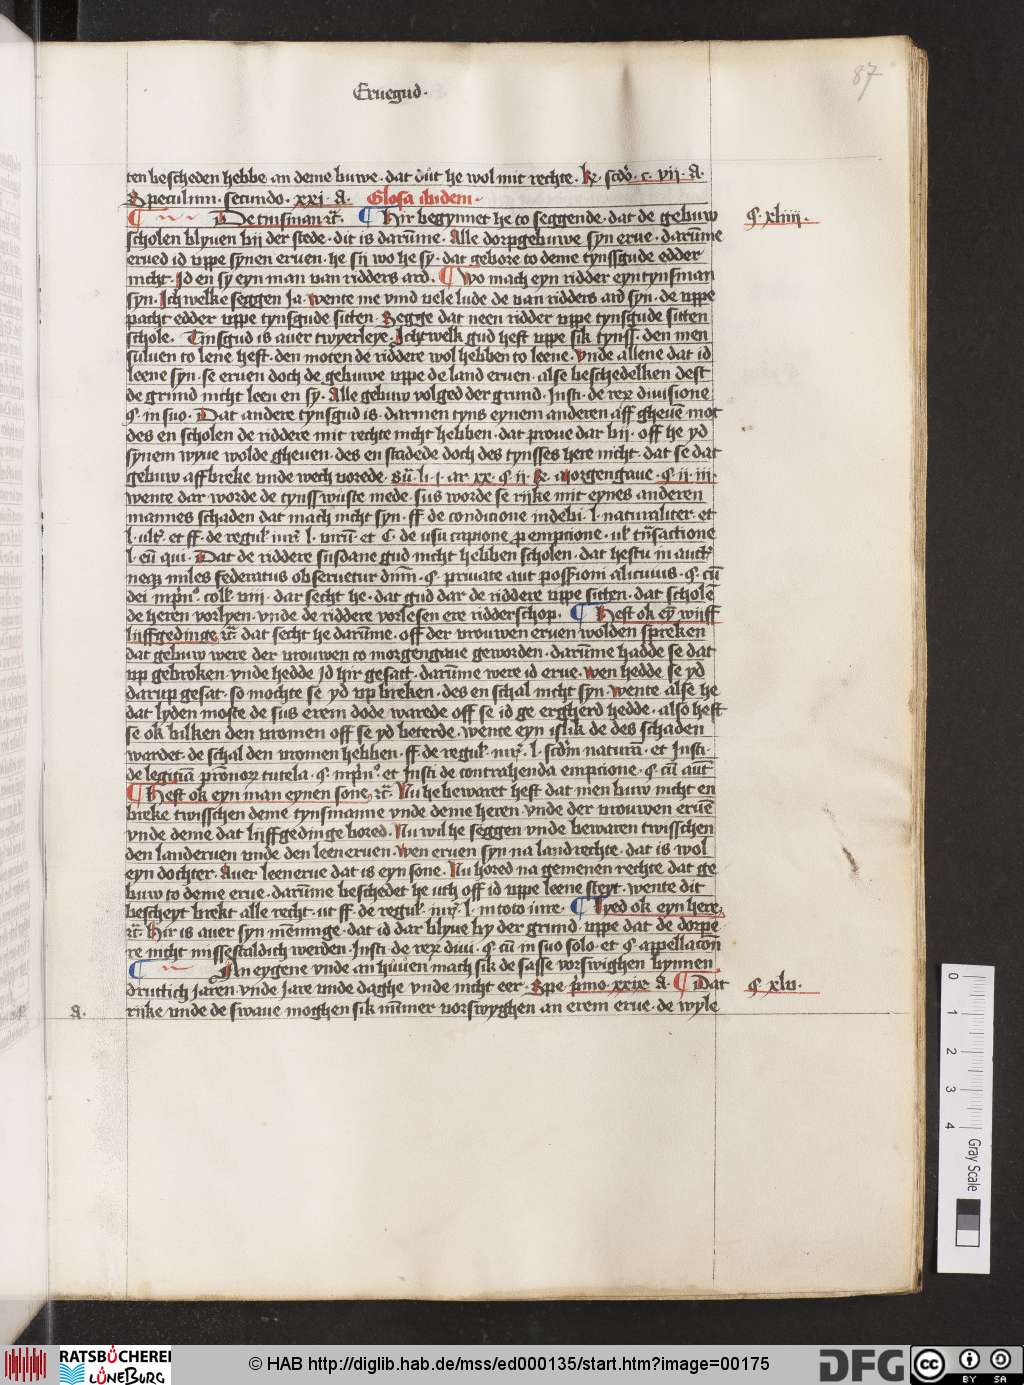 Eruegud.
87
ten bescheden hebbe an deme buwe. dat důt he wol mit rechte. scdo. c. vii. A.
Speculum. secundo. xxi. A. Glosa ibidem.
De tinsman ⁊c̃. ¶ Hir begynnet he to seggende. dat de gebuw
§. xliiii.
scholen blyuen bij der stede. dit is darūme. Alle dorpgebuwe syn erue. darūme
erued id vppe synen eruen. he sij wo he sy. dat gebore to deme tynssgude edder
nicht. Id en sy eyn man van ridders ard. ¶ Wo mach eyn ridder eyn tynsman
syn. Ich welke seggen Ja. wente me vind vele lude de van ridders ard syn. de vppe
pacht edder vppe tynsgude sitten. Segge dat neen ridder vppe tynsgude sitten
schole. Tinsgud is auer twyerleye. Icht welk gud heft vppe sik tynss. den men
suluen to lene heft. den moten de riddere wol hebben to leene. Vnde allene dat id
leene syn. se eruen doch de gebuwe vppe de land eruen. alse beschedelken dest
de grund nicht leen en sy. Alle gebuw volged der grund. Insti. de rerͣ diuisione
§. in suo. Dat andere tynsgud is. dar men tyns eynem anderen aff gheuē mot
des en scholen de riddere mit rechte nicht hebben. dat proue dar bij. off he yd
synem wyue wolde gheuen. des en stadede doch des tynsses here nicht. dat se dat
gebuw aff breke vnde wech vorede. li. i. ar. xx. §. ii. morgengaue. §. ii. iii.
wente dar worde de tynss wüste mede. sus worde se rijke mit eynes anderen
mannes schaden dat mach nicht syn. ff. de condicione indebi. l. naturaliter. et
l. vltͥ. et ff. de regul̄ iurͥ. l. virū. et C. de vsu capione p emptione. vl trͣsactione
l. eū qui. Dat de riddere susdane gud nicht hebben scholen. dat hestu in auctͤ.
neqꝫ miles federatus obseruetur dnm̄. §. priuate aut possessioni alicuius. §. cū
dei coll. viii. dar secht he. dat gud dar de riddere vppe sitten. dat scholē
de heren vorlyen. vnde de riddere vorlesen ere ridderschop. ¶ Heft ok eyn wijff
lijffgedinge ⁊c̃. dat secht he darūme. off der vrouwen eruen wolden spreken
dat gebuw were der vrouwen to morgengaue geworden. darūme hadde se dat
vp gebroken. vnde hedde Id hir gesatt. darūme were id erue. wen hedde se yd
darup gesat. so mochte se yd vp breken. des en schal nicht syn. wente alse he
dat lyden moste de sus erem dode warede off se id ge ergherd hedde. also heft
se ok bilken den vromen off se yd beterde. wente eyn islik de des schaden
wardet. de schal den vromen hebben. ff. de regul̄. iurͥ. l. scdm̄ naturā. et Insti.
de legitiā pronoꝝ tutela. §. et Insti de contrahenda empcione. §. cū aūt
¶ Heft ok eyn man eynen sone. ⁊c̃. Nu he bewaret heft dat men buw nicht en
breke twisschen deme tynsmanne vnde deme heren. vnde der vrouwen eruē
vnde deme dat lijffgedinge bored. Nu wil he seggen vnde bewaren twisschen
den landeruen vnde den leeneruen. Wen eruen syn na landrechte. dat is wol
eyn dochter. Auer leenerue dat is eyn sone. Nu hored na gemenen rechte dat ge
buw to deme erue. darūme beschedet he iich off id vppe leene steyt. wente dit
bescheyt brekt alle recht. ut ff. de regul̄. iurͥ. l. in toto iure. ¶ Tyed ok eyn here,
⁊c̃. Hir is auer syn mēninge. dat id dar blyue by der grund. vppe dat de dorpe
re nicht missestaldich werden. Insti. de rerͣ diui. §. cū in suo solo. et §. appellacōn̄
¶ An eygene vnde an hůuen mach sik de sasse vorswighen bynnen
druttich Jaren. vnde Jare vnde daghe vnde nicht eer. Spe. primo. xxix. A. ¶ Dat
§. xlv.
A.
rijke vnde de swaue moghen sik nūmer vorswyghen an erem erue. de wyle
0
1
2
3
4
Gray Scale
RATSBÜCHEREI LÜNEBURG
© HAB http://diglib.hab.de/mss/ed000135/start.htm?image=00175
DFG
cc BY SA